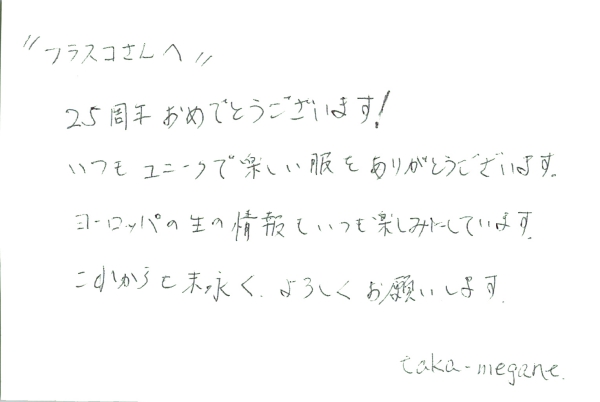 〃フラスコさんへ〃
25周年おめでとうございます!
いつもユニークで楽しい服をありがとうございます。
ヨーロッパの生の情報もいつも楽しみにしています。
これからも末永く、よろしくお願いします。
taka-megane.